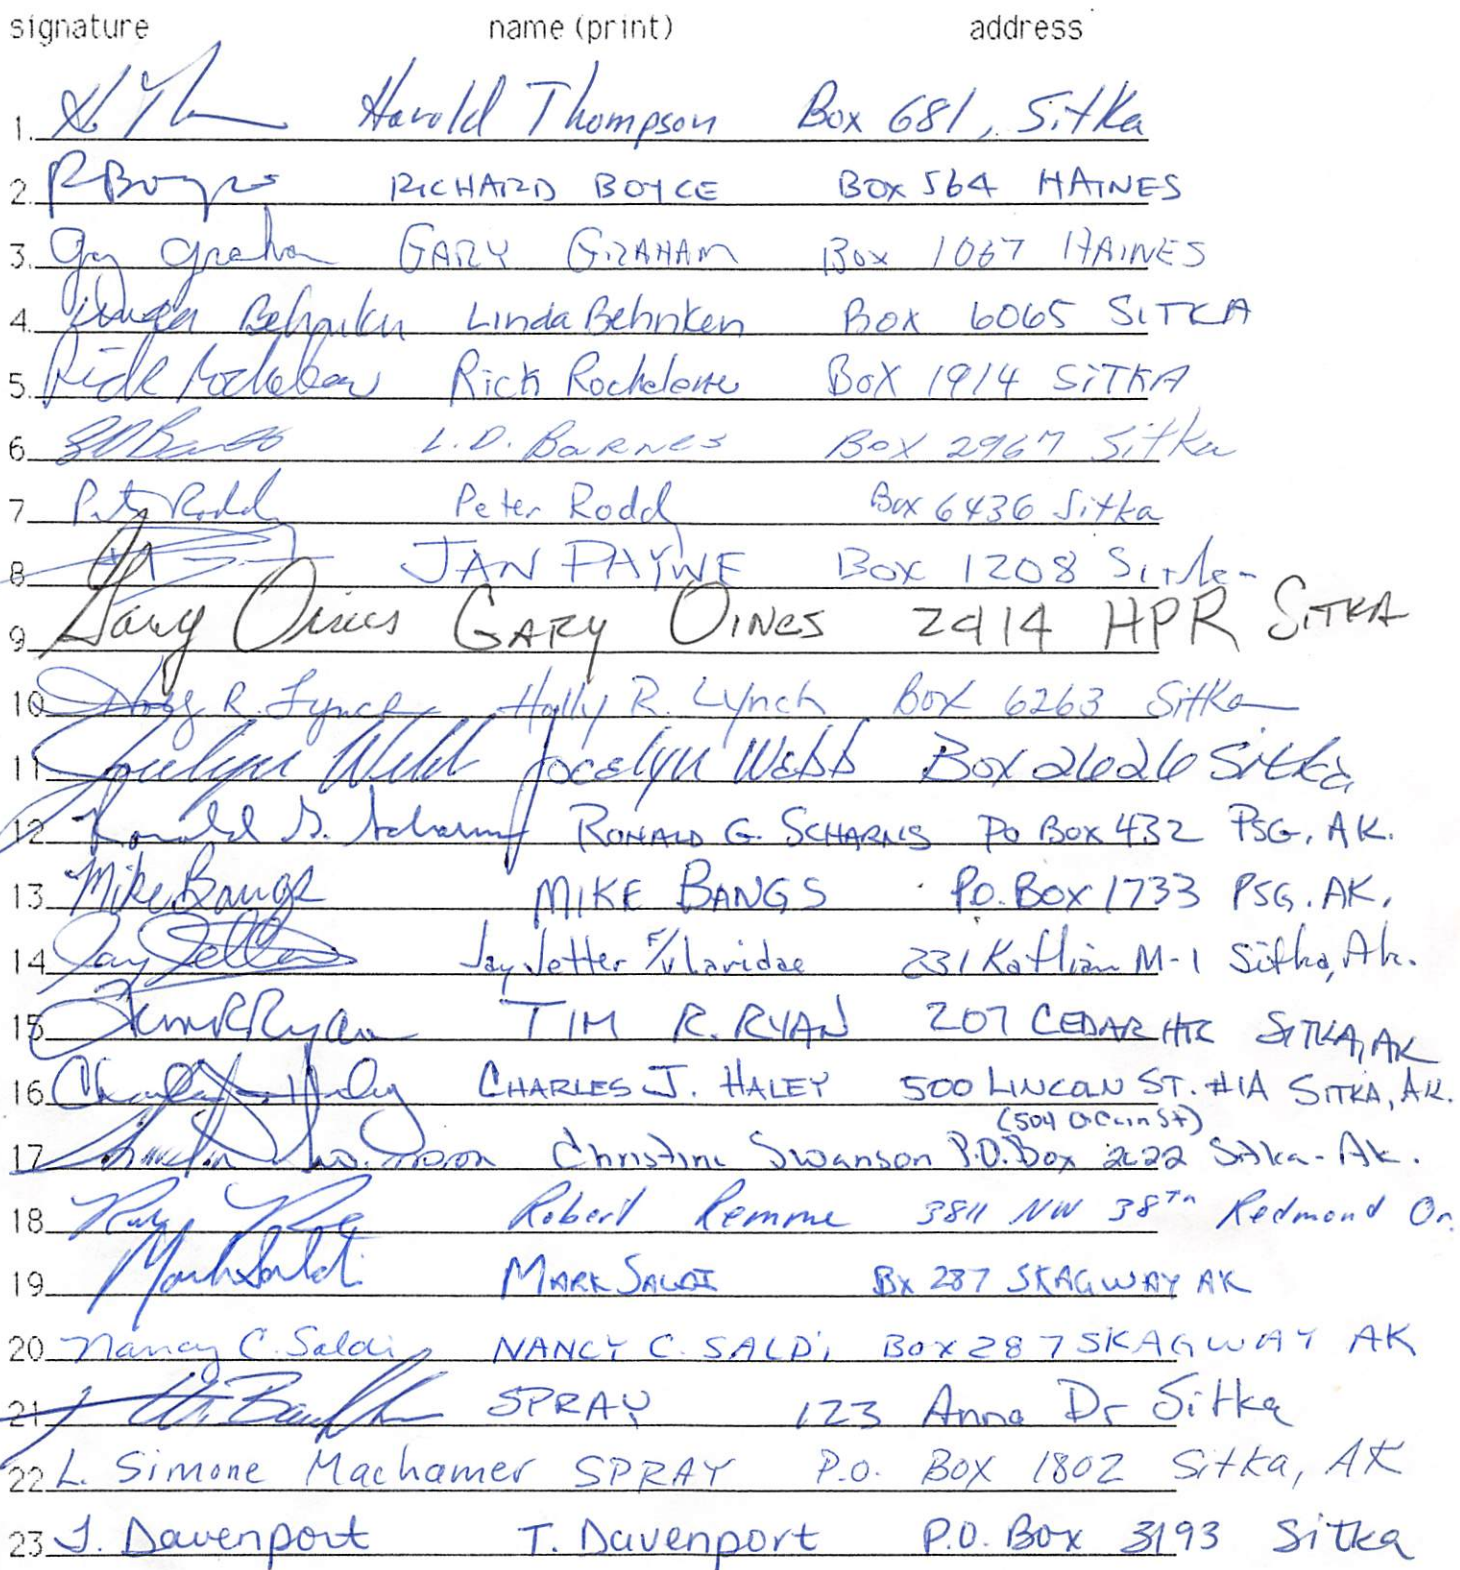 signature name (print) address
1. Harold Thompson Box 681, Sitka
2. RBoyce RICHARD BOYCE BOX 564 HAINES
3. Gary Graham GARY GRAHAM Box 1067 HAINES
4. Linda Behnken Linda Behnken Box 6065 SITKA
5. Rick Rick BOX 1914 SITKA
6. L.D. BARNES BOX 2967 Sitka
7. Peter Roddy Peter Roddy Box 6436 Sitka
8. JAN PAYNE BOX 1208 Sitka
9. Gary Oines GARY OINES 2414 HPR SITKA
10. Holly R. Lynch Holly R. Lynch BOX 6263 Sitka
11. Jocelyn Webb Jocelyn Webb Box 2626 Sitka
12. Ronald G. RONALD G. PO BOX 432 PSG, AK.
13. Mike Bangs MIKE BANGS P.O. BOX 1733 PSG. AK.
14. Jay Jetter Jay Jetter F/V Laridae 231 Katlian M-1 Sitka, Ak.
15. Tim R Ryan TIM R. RYAN 207 CEDAR SITKA, AK
16. Charles J. Haley CHARLES J. HALEY 500 LINCOLN ST. #1A SITKA, AK.
(504 St)
17. Christine Swanson Christine Swanson P.O. Box 2022 Sitka - Ak.
18. Robert Remme 3811 NW 38th Redmond Or.
19. Mark Saldi MARK SALDI BX 287 SKAGWAY AK
20. Nancy C. Saldi NANCY C. SALDi BOX 287 SKAGWAY AK
21. SPRAY 123 Anna Dr Sitka
22. L. Simone Machamer SPRAY P.O. BOX 1802 Sitka, AK
23. T. Davenport T. Davenport P.O. Box 3193 Sitka